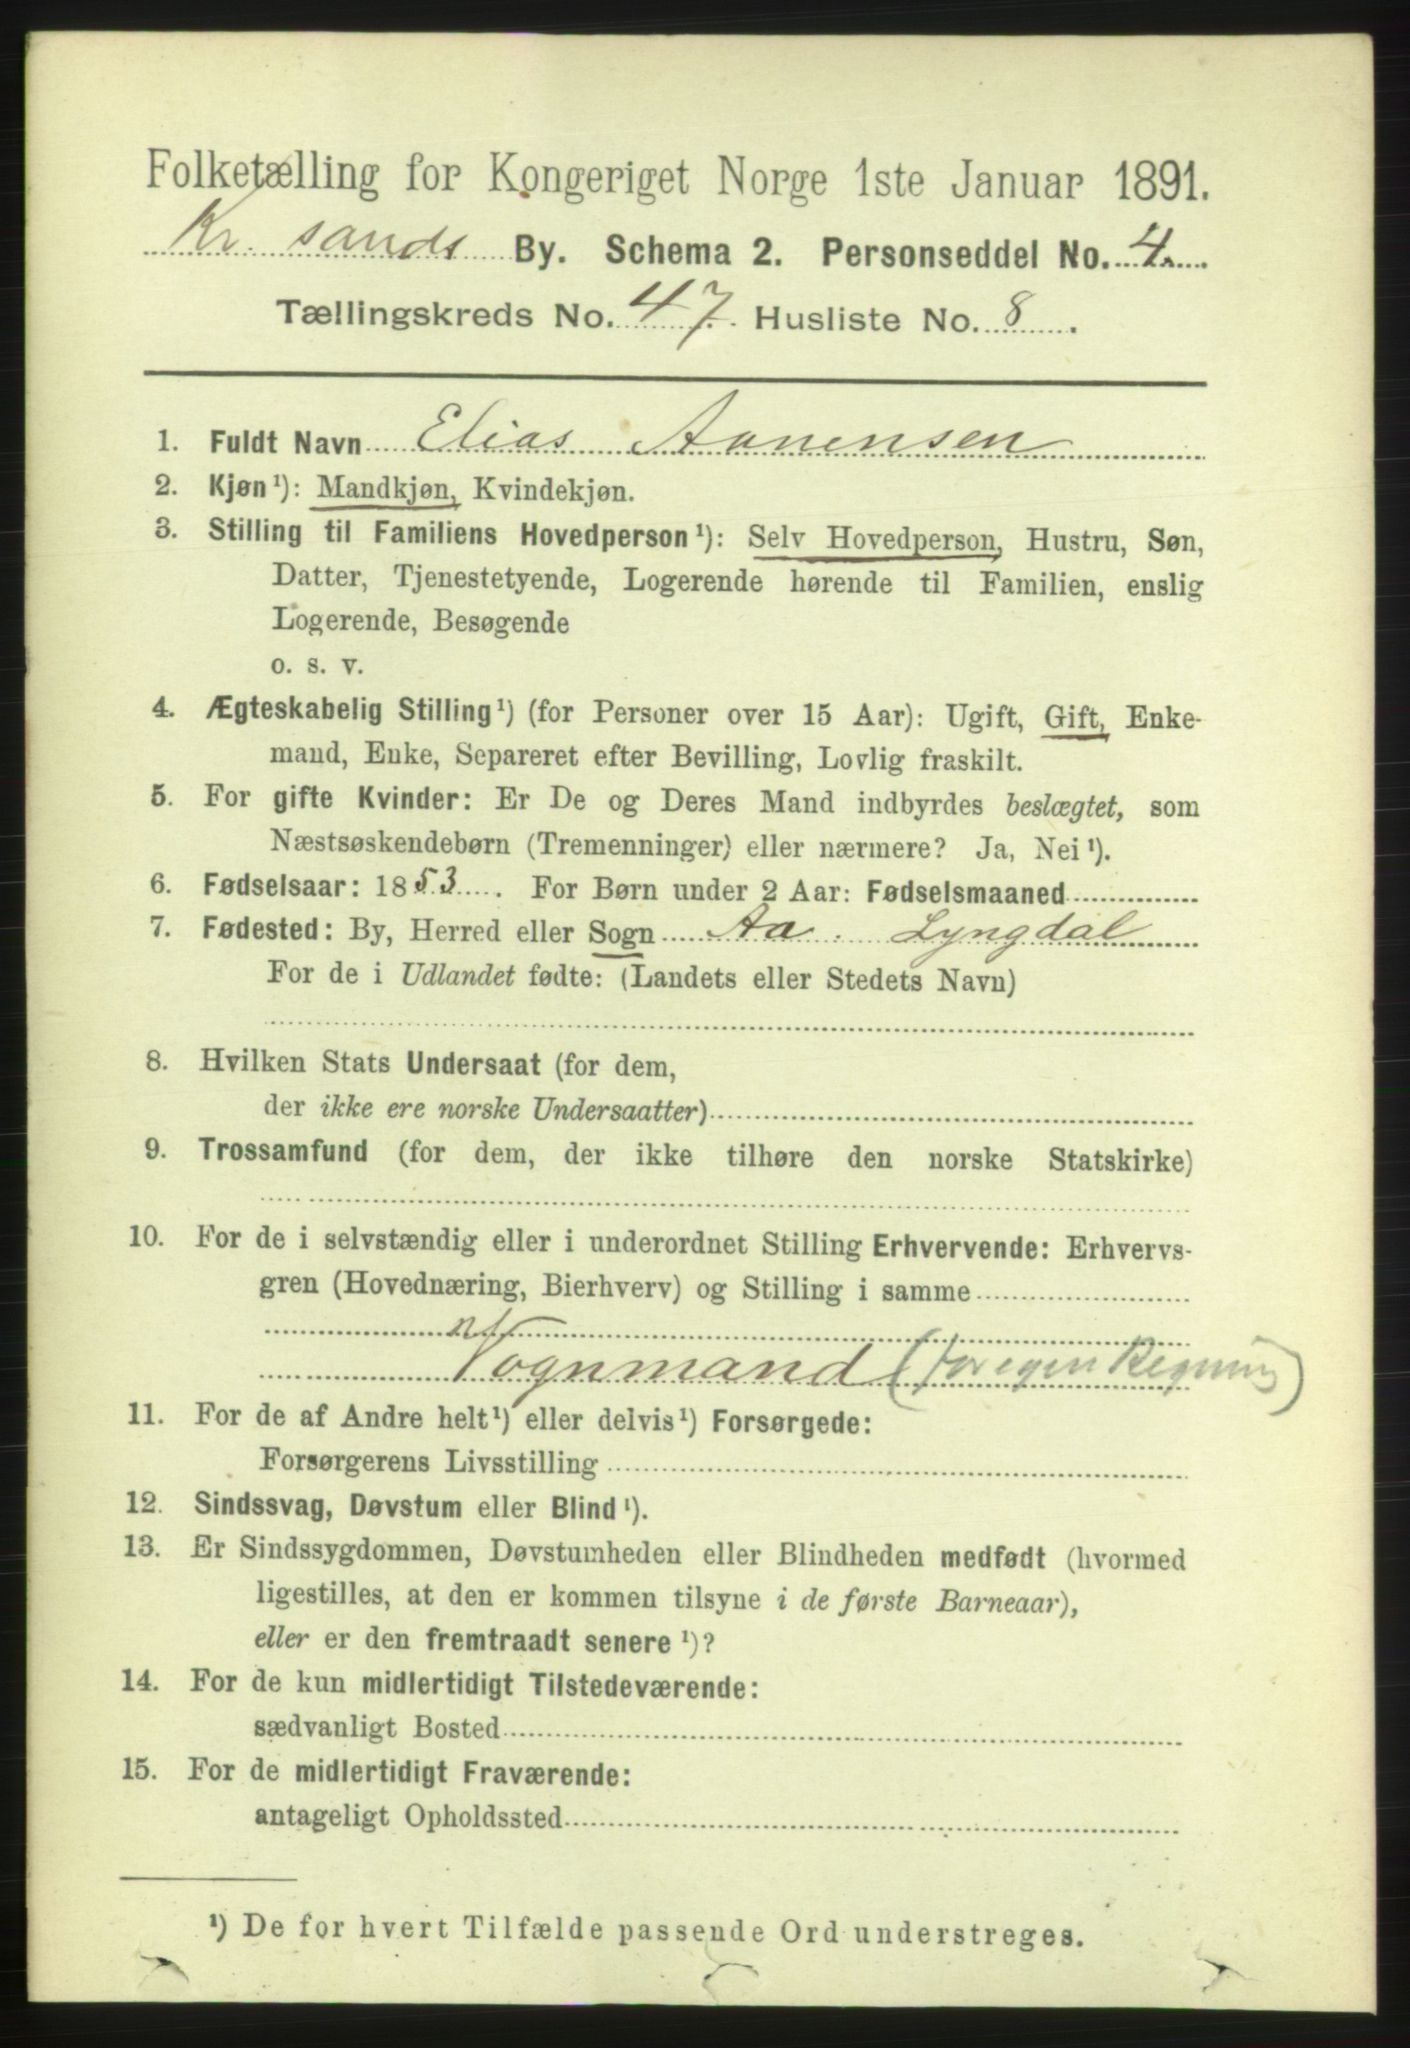 Folketælling for Kongeriget Norge 1ste Januar 1891.
Kr. sands By. Schema 2. Personseddel No. 4.
Tællingskreds No. 47. Husliste No. 8.
1. Fuldt Navn Elias Aanensen
2. Kjøn¹): Mandkjøn, Kvindekjøn.
3. Stilling til Familiens Hovedperson¹): Selv Hovedperson, Hustru, Søn,
Datter, Tjenestetyende, Logerende hørende til Familien, enslig
Logerende, Besøgende
o. s. v.
4. Ægteskabelig Stilling¹) (for Personer over 15 Aar): Ugift, Gift, Enke-
mand, Enke, Separeret efter Bevilling, Lovlig fraskilt.
5. For gifte Kvinder: Er De og Deres Mand indbyrdes beslægtet, som
Næstsøskendebørn (Tremenninger) eller nærmere? Ja, Nei¹).
6. Fødselsaar: 1853. For Børn under 2 Aar: Fødselsmaaned
7. Fødested: By, Herred eller Sogn Aa. Lyngdal
For de i Udlandet fødte: (Landets eller Stedets Navn)
8. Hvilken Stats Undersaat (for dem,
der ikke ere norske Undersaatter)
9. Trossamfund (for dem, der ikke tilhøre den norske Statskirke)
10. For de i selvstændig eller i underordnet Stilling Erhvervende: Erhvervs-
gren (Hovednæring, Bierhverv) og Stilling i samme
Vognmand (for egen Regning)
11. For de af Andre helt¹) eller delvis¹) Forsørgede:
Forsørgerens Livsstilling
12. Sindssvag, Døvstum eller Blind¹).
13. Er Sindssygdommen, Døvstumheden eller Blindheden medfødt (hvormed
ligestilles, at den er kommen tilsyne i de første Barneaar),
eller er den fremtraadt senere¹)?
14. For de kun midlertidigt Tilstedeværende:
sædvanligt Bosted
15. For de midlertidigt Fraværende:
antageligt Opholdssted
¹) De for hvert Tilfælde passende Ord understreges.